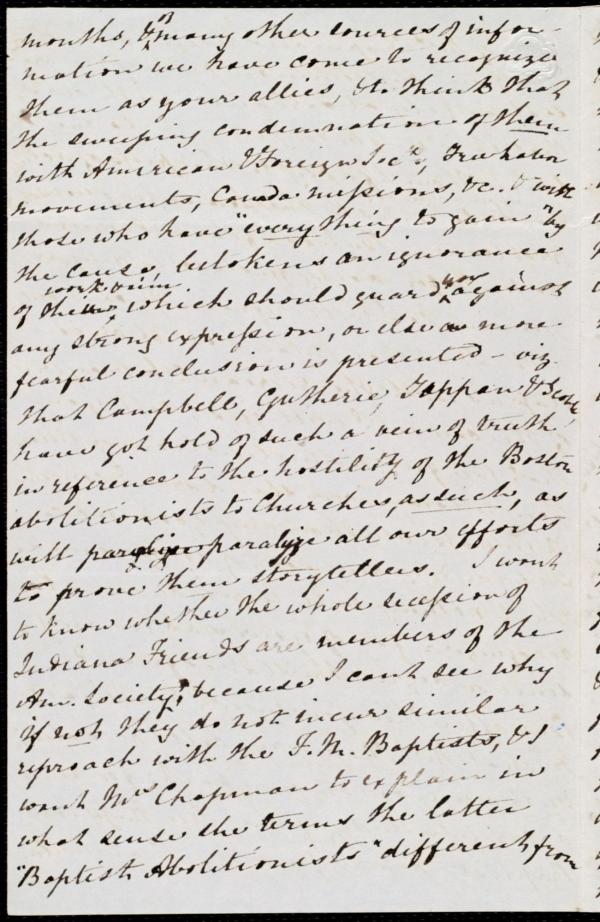 months, & of many other sources of infor-
mation we have come to recognize
them as your allies, & to think that
the sweeping condemnation of them
with American & Foreign Soc.s, Free labor
movements, Canada missions, &c. & with
those who have "every thing to gain" by
the cause, betokens an ignorance
of their work view, which should guard you against
any strong expression, or else a more
fearful conclusion is presented - viz
that Campbell, Gutherie, Tappan & Scoble,
have got hold of such a vein of truth
in reference to the hostility of the Boston
abolitionists to Churches, as such, as
will paralyze all our efforts
to prove them storytellers. I want
to know whether the whole secession of
Indiana Friends are members of the
Am. Society, because I cant see why
if not they do not incur similar
reproach with the F. W. Baptists, & I
want Mrs Chapman to explain in
what sense she terms the latter
"Baptist Abolitionists" different from